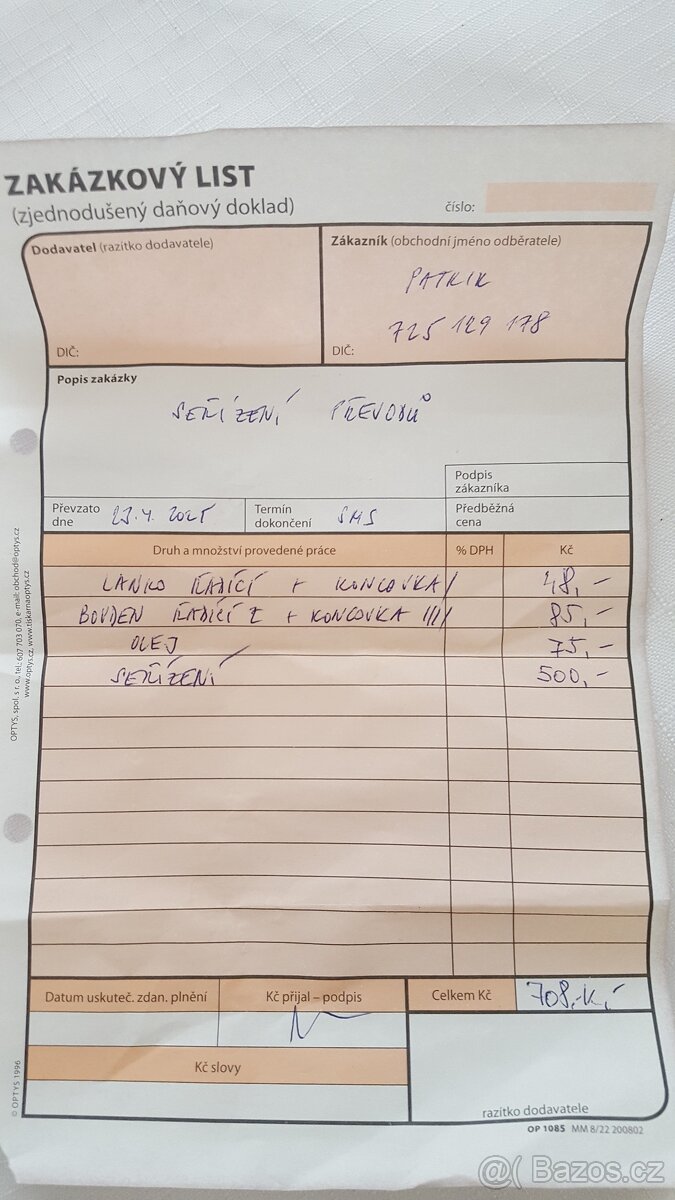 ZAKÁZKOVÝ LIST
(zjednodušený daňový doklad)
číslo:
Dodavatel (razítko dodavatele)
Zákazník (obchodní jméno odběratele)
PATRIK
725 129 178
DIČ:
DIČ:
Popis zakázky
SEŘÍZENÍ PŘEVODŮ
Podpis zákazníka
Převzato dne 23.4.2025
Termín dokončení SMS
Předběžná cena
Druh a množství provedené práce % DPH Kč
LANKO ŘADÍCÍ + KONCOVKA / 48,-
BOVDEN ŘADÍCÍ Z + KONCOVKA /// 85,-
OLEJ 75,-
SEŘÍZENÍ 500,-
Datum uskuteč. zdan. plnění
Kč přijal – podpis
Celkem Kč 708,-Kč
Kč slovy
razítko dodavatele
OP 1085 MM 8/22 200802
OPTYS, spol. s r. o., tel.: 607 703 070, e-mail: obchod@optys.cz
www.optys.cz, www.tiskarnaoptys.cz
© OPTYS 1996
@( Bazos.cz